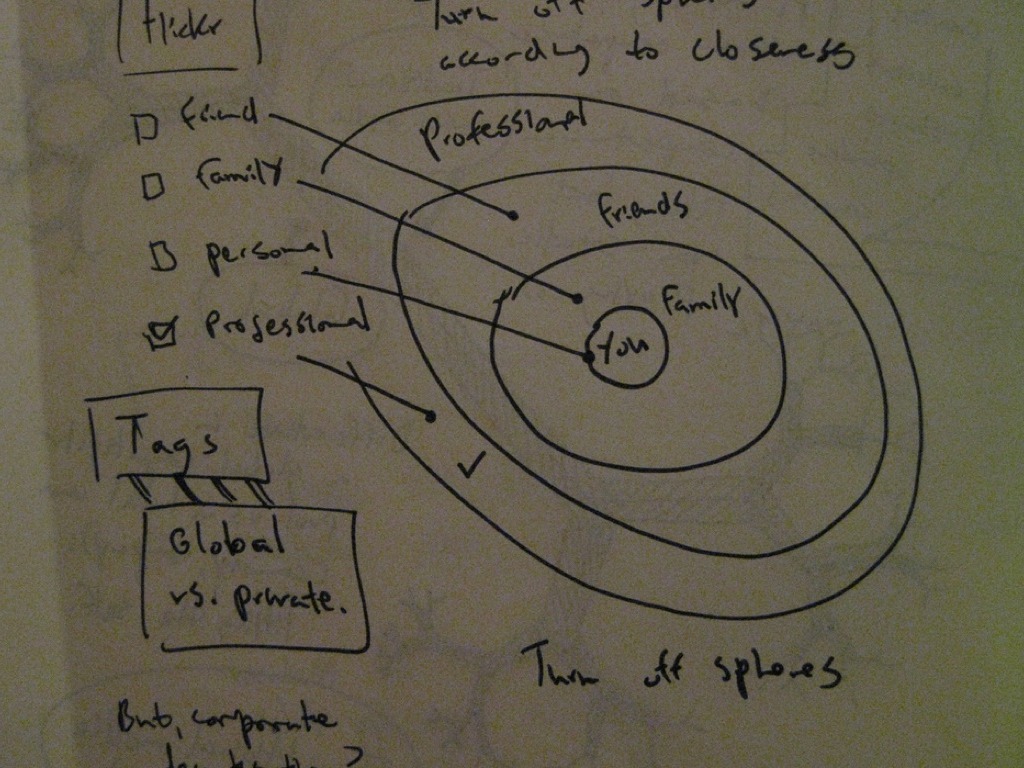 flickr
Turn off spheres
according to closeness
friend
family
personal
Professional
Professional
Friends
Family
You
Tags
Global
vs. private.
Turn off spheres
But, corporate